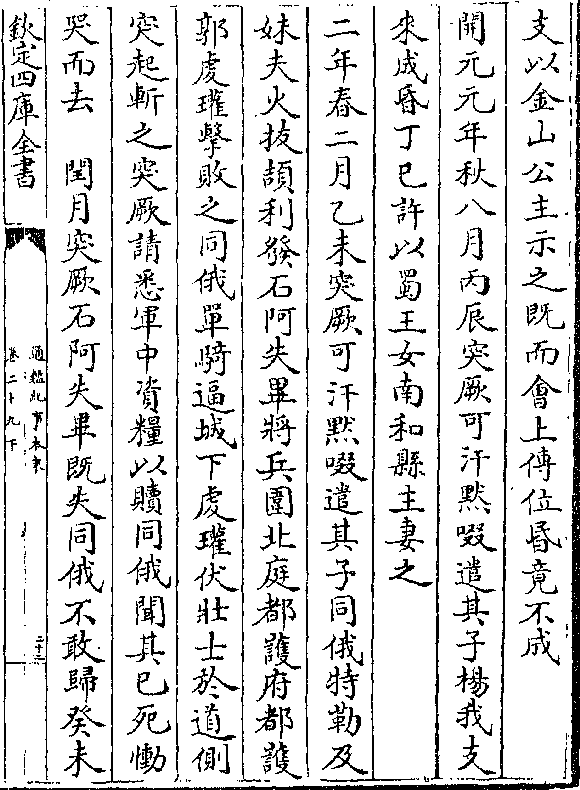 支以金山公主示之既而會上傳位昏竟不成
開元元年秋八月丙辰突厥可汗黙啜遣其子楊我支
來成昏丁巳許以蜀王女南和縣主妻之
二年春二月乙未突厥可汗黙啜遣其子同俄特勒及
妹夫火拔頡利發石阿失畢將兵圍北庭都護府都護
郭䖍瓘擊敗之同俄單騎逼城下䖍瓘伏壯士於道側
突起斬之突厥請悉軍中資糧以贖同俄聞其已死慟
哭而去　閏月突厥石阿失畢既失同俄不敢歸癸未
欽定四庫全書
通鑑紀事本末
卷二十九下
二十三